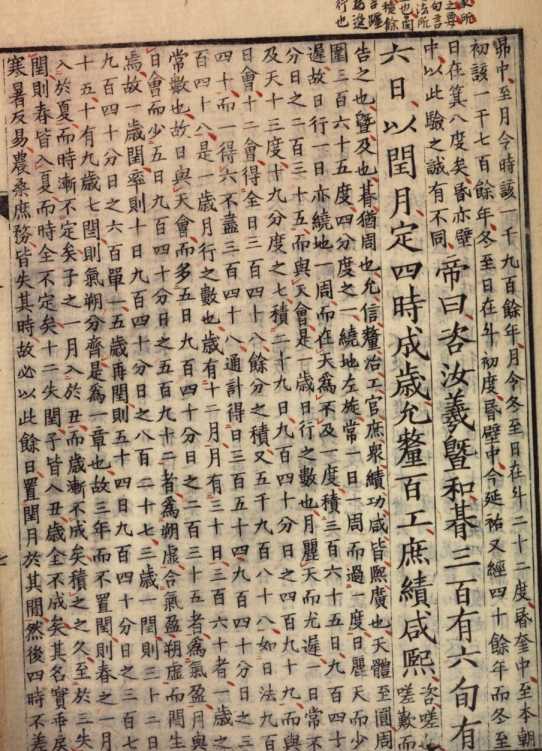 昴中至月令時該一千九百餘年月令冬至日在斗二十二度昏奎中至本朝
初該一千七百餘年冬至日在斗初度昏壁中今延祐又經四十餘年而冬至
日在箕八度矣昏亦壁
中以此驗之誠有不同
帝曰咨汝羲暨和朞三百有六旬有
六日以閏月定四時成歲允釐百工庶績咸熙
咨嗟
嗟歎而
告之也暨及也朞猶周也允信釐治工官庶衆績功咸皆熙廣也天體至圓周
圍三百六十五度四分度之一繞地左旋常一日一周而過一度日麗天而少
遲故日行一日亦繞地一周而在天爲不及一度積三百六十五日九百四十
分日之二百三十五而與天會是一歲日行之數也月麗天而尤遲一日常不
及天十三度十九分度之七積二十九日九百四十分日之四百九十九而與
日會十二會得全日三百四十八餘分之積又五千九百八十八如日法九百
四十而一得六不盡三百四十八通計得日三百五十四九百四十分日之三
百四十八是一歲月行之數也歲有十二月月有三十日三百六十者一歲之
常數也故日與天會而多五日九百四十分日之二百三十五者爲氣盈月與
日會而少五日九百四十分日之五百九十二者爲朔虛合氣盈朔虛而閏生
焉故一歲閏率則十日九百四十分日之八百二十七三歲一閏則三十二日
九百四十分日之六百單一五歲再閏則五十四日九百四十分日之三百七
十五十有九歲七閏則氣朔分齊是爲一章也故三年而不置閏則春之一月
入於夏而時漸不定矣子之一月入於丑而歲漸不成矣積之之久至於三失
閏則春皆入夏而時全不定矣十二失閏子皆入丑歲全不成矣其名實乖戾
寒暑反易農桑庶務皆失其時故必以此餘日置閏月於其間然後四時不差